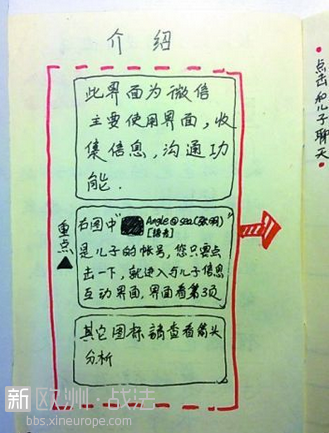 介绍
此界面为微信
主要使用界面，收
集信息，沟通功
能．
重点
右图中“ Angle@sea(张明)”
[语音]
是儿子的帐号，您只要点
击一下，就进入与儿子信息
互动界面，界面看第3页
其它图标请查看箭头
分析
点击和儿子聊天
新欧洲·战法
bbs.xineurope.com